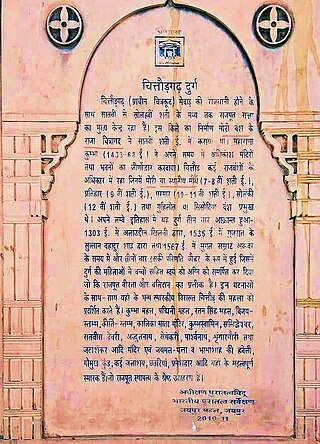 चित्तौड़गढ़ दुर्ग
चित्तौड़गढ़ (प्राचीन चित्रकूट) मेवाड़ की राजधानी होने के
साथ सातवीं से सोलहवीं शती के मध्य तक राजपूत सत्ता
का मुख्य केन्द्र रहा है। इस किले का निर्माण मोरी वंश के
राजा चित्रांगद ने सातवीं शती ई. में कराया था। महाराणा
कुम्भा (1433-68 ई.) ने अपने समय में अधिकांश मंदिरों
तथा भवनों का जीर्णोद्धार करवाया। किला कई राजवंशों के
अधिकार में रहा जिनमें मोरी या (7-8 वीं शती ई.)
प्रतिहार (9 वीं शती ई.), परमार (10-11 वीं शती ई.), सोलंकी
(12 वीं शती ई.) तथा गुहिलोत या सिसोदिया वंश प्रमुख
थे। अपने लम्बे इतिहास में यह दुर्ग तीन बार आक्रान्त हुआ-
1303 ई. में अलाउद्दीन खिलजी द्वारा, 1535 ई. में गुजरात के
सुल्तान बहादुर शाह द्वारा तथा 1567 ई. में मुगल सम्राट अकबर
के समय में और तीनों बार इसकी परिणति जौहर के रूप में हुई जिसमें
दुर्ग की महिलाओं ने बच्चों सहित स्वयं को अग्नि को समर्पित कर दिया
जो कि राजपूत वीरता और बलिदान का प्रतीक है। इन घटनाओं
के साथ-साथ यहाँ के भव्य स्मारकीय विरासत चित्तौड़ की महत्ता को
प्रदर्शित करते हैं। कुम्भा महल, पद्मिनी महल, रतन सिंह महल, विजय-
स्तम्भ, कीर्ति-स्तम्भ, कालिका माता मंदिर, कुम्भस्वामिन, समिद्धेश्वर,
सतबीस देवरी, अद्भुतनाथ, क्षेमंकरी, पार्श्वनाथ, शृंगारचौरी तथा
जटाशंकर आदि मंदिर एवं जयमल-पत्ता व भामाशाह की हवेली,
गोमुख कुंड, कई जलाशय, छतरियां, प्रवेशद्वार आदि यहां के महत्वपूर्ण
स्मारक हैं जो राजपूत स्थापत्य के श्रेष्ठ उदाहरण हैं।
अधीक्षण पुरातत्वविद्
भारतीय पुरातत्व सर्वेक्षण
जयपुर मंडल, जयपुर
2010-11